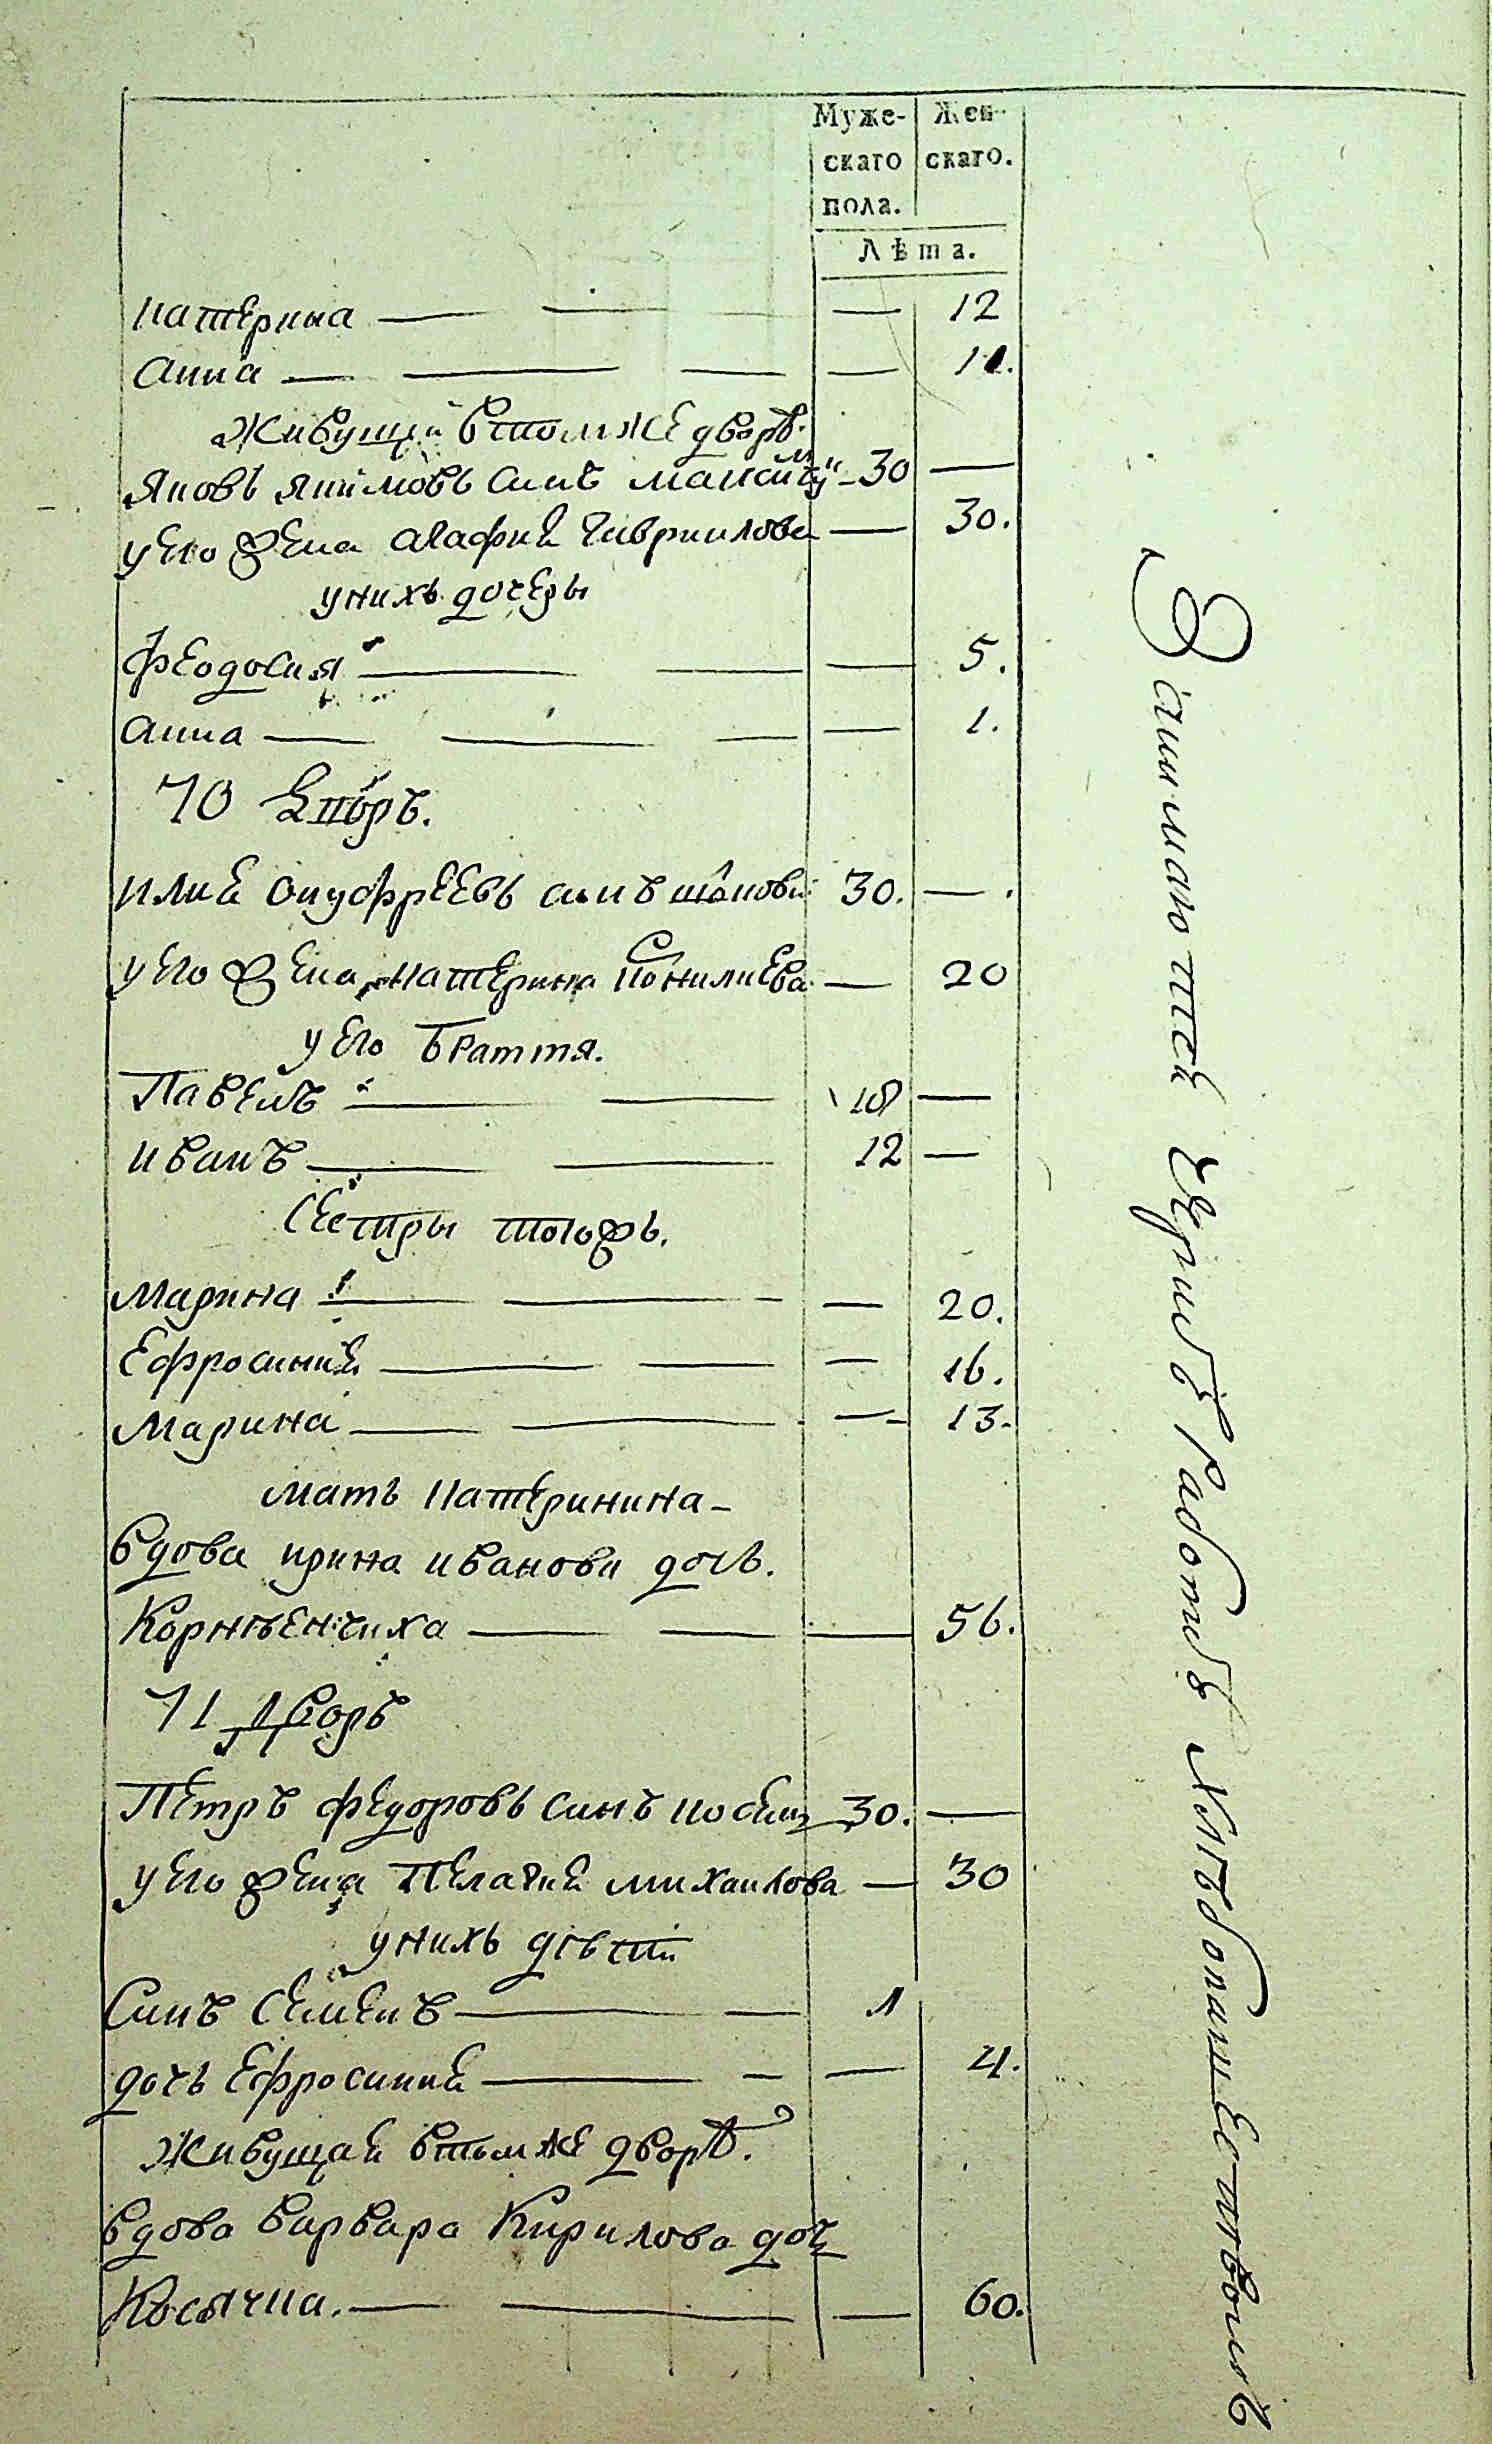 Муже- Жен-
скаго скаго.
пола.
Лѣта.
катерина — — — — 12
анна — — — — 10.
Живущи в томже дворѣ.
яковъ якимовъ синъ 30 —
у его жена агафия гавриилова — 30.
у нихъ дочеры
феодосия — — — 5.
анна — — — — 1.
70 Дворъ.
илия онуфрѣевъ синъ 30. —
у его жена катерина — 20
у его Браття.
Павелъ — — 18 —
иванъ — — 12 —
Сестры тогожъ.
Марина — — — 20.
Ефросиния — — — 16.
Марина — — — 13.
мать катеринина
вдова ирина иванова дочь.
Корнѣенчиха — — — 56.
71 Дворъ
Петръ федоровъ синъ 30. —
у его жена Пелагия михаилова — 30
у нихъ дѣти
Синъ Семенъ — — 1
дочь Ефросиния — — — 4.
Живущая в томже дворѣ.
вдова варвара Кирилова дочь
Косячка. — — — 60.
Занимаются Единою Работою Хлѣбопашественною